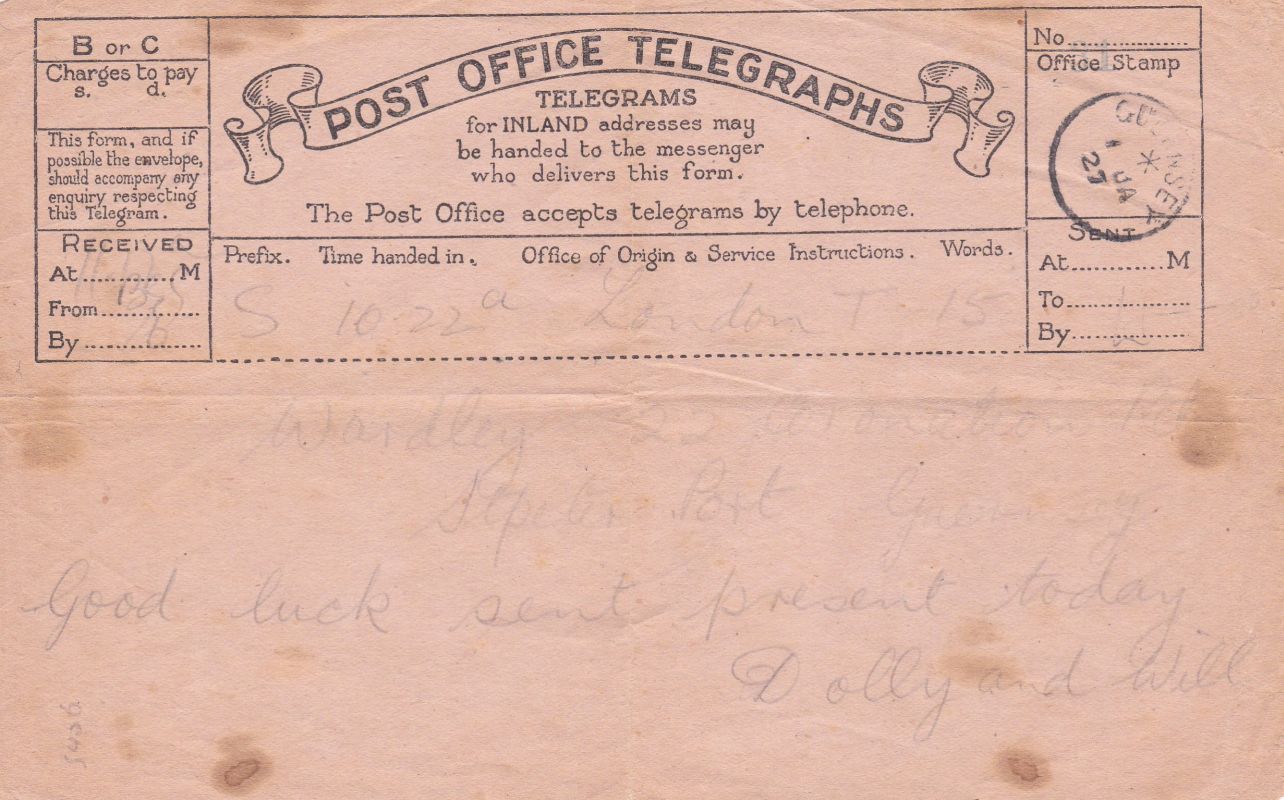 B or C
Charges to pay
s. d.
This form, and if
possible the envelope,
should accompany any
enquiry respecting
this Telegram.
RECEIVED
At............M
From...............
By..................
POST OFFICE TELEGRAPHS
TELEGRAMS
for INLAND addresses may
be handed to the messenger
who delivers this form.
The Post Office accepts telegrams by telephone.
Prefix. Time handed in. Office of Origin & Service Instructions. Words.
S 10.22a London T 15
No..................
Office Stamp
GUERNSEY
1 JA
27
SENT
At............M
To..................
By..................
Wardley 22 Coronation Rd
St peter Port Guernsey
Good luck sent present today
Dolly and Will